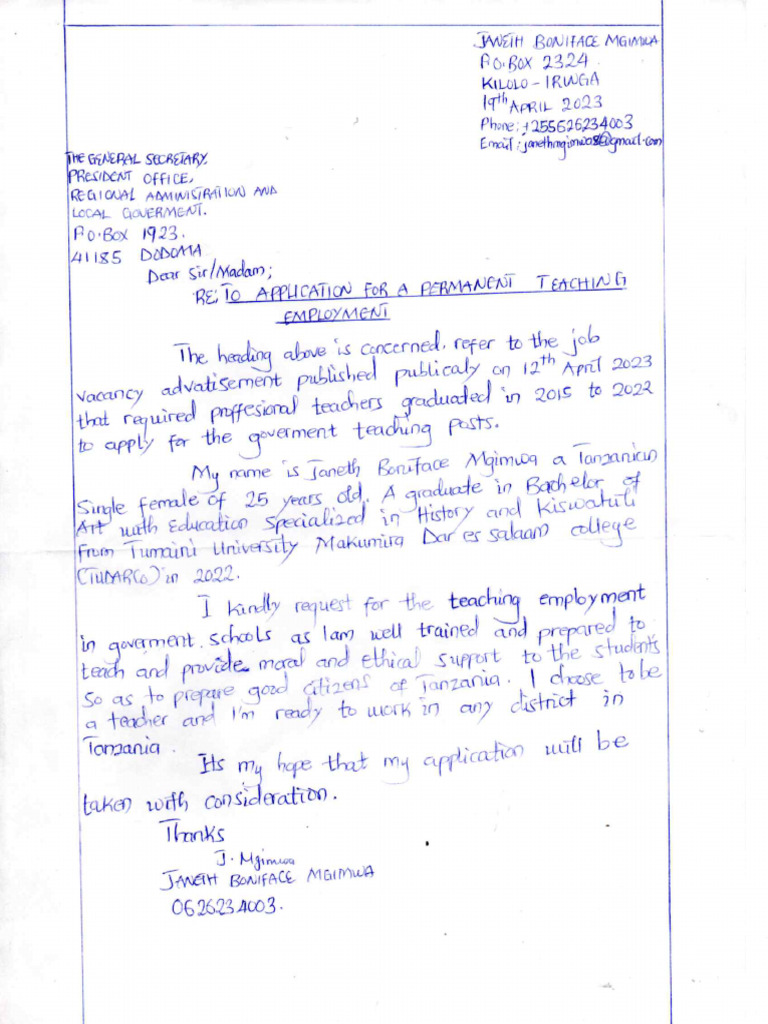 JANETH BONIFACE MGIMWA
P.O.BOX 2324
KILOLO - IRINGA
19th APRIL 2023
Phone: +255626234003
Email: janethmgimwa8@gmail.com
THE GENERAL SECRETARY,
PRESIDENT OFFICE,
REGIONAL ADMINISTRATION AND
LOCAL GOVERMENT.
P.O.BOX 1923.
41185 DODOMA
Dear Sir/Madam;
RE: TO APPLICATION FOR A PERMANENT TEACHING
EMPLOYMENT
The heading above is concerned, refer to the job
vacancy advatisement published publicaly on 12th April 2023
that required proffesional teachers graduated in 2015 to 2022
to apply for the goverment teaching posts.
My name is Janeth Boniface Mgimwa a Tanzanian
Single female of 25 years old. A graduate in Bachelor of
Art with Education specialized in History and Kiswahili
from Tumaini University Makumira Dar es salaam college
(TUDARCo) in 2022.
I kindly request for the teaching employment
in goverment schools as I am well trained and prepared to
teach and provide moral and ethical support to the students
so as to prepare good citizens of Tanzania. I choose to be
a teacher and I'm ready to work in any district in
Tanzania.
Its my hope that my application will be
taken with consideration.
Thanks
J. Mgimwa
JANETH BONIFACE MGIMWA
0626234003.